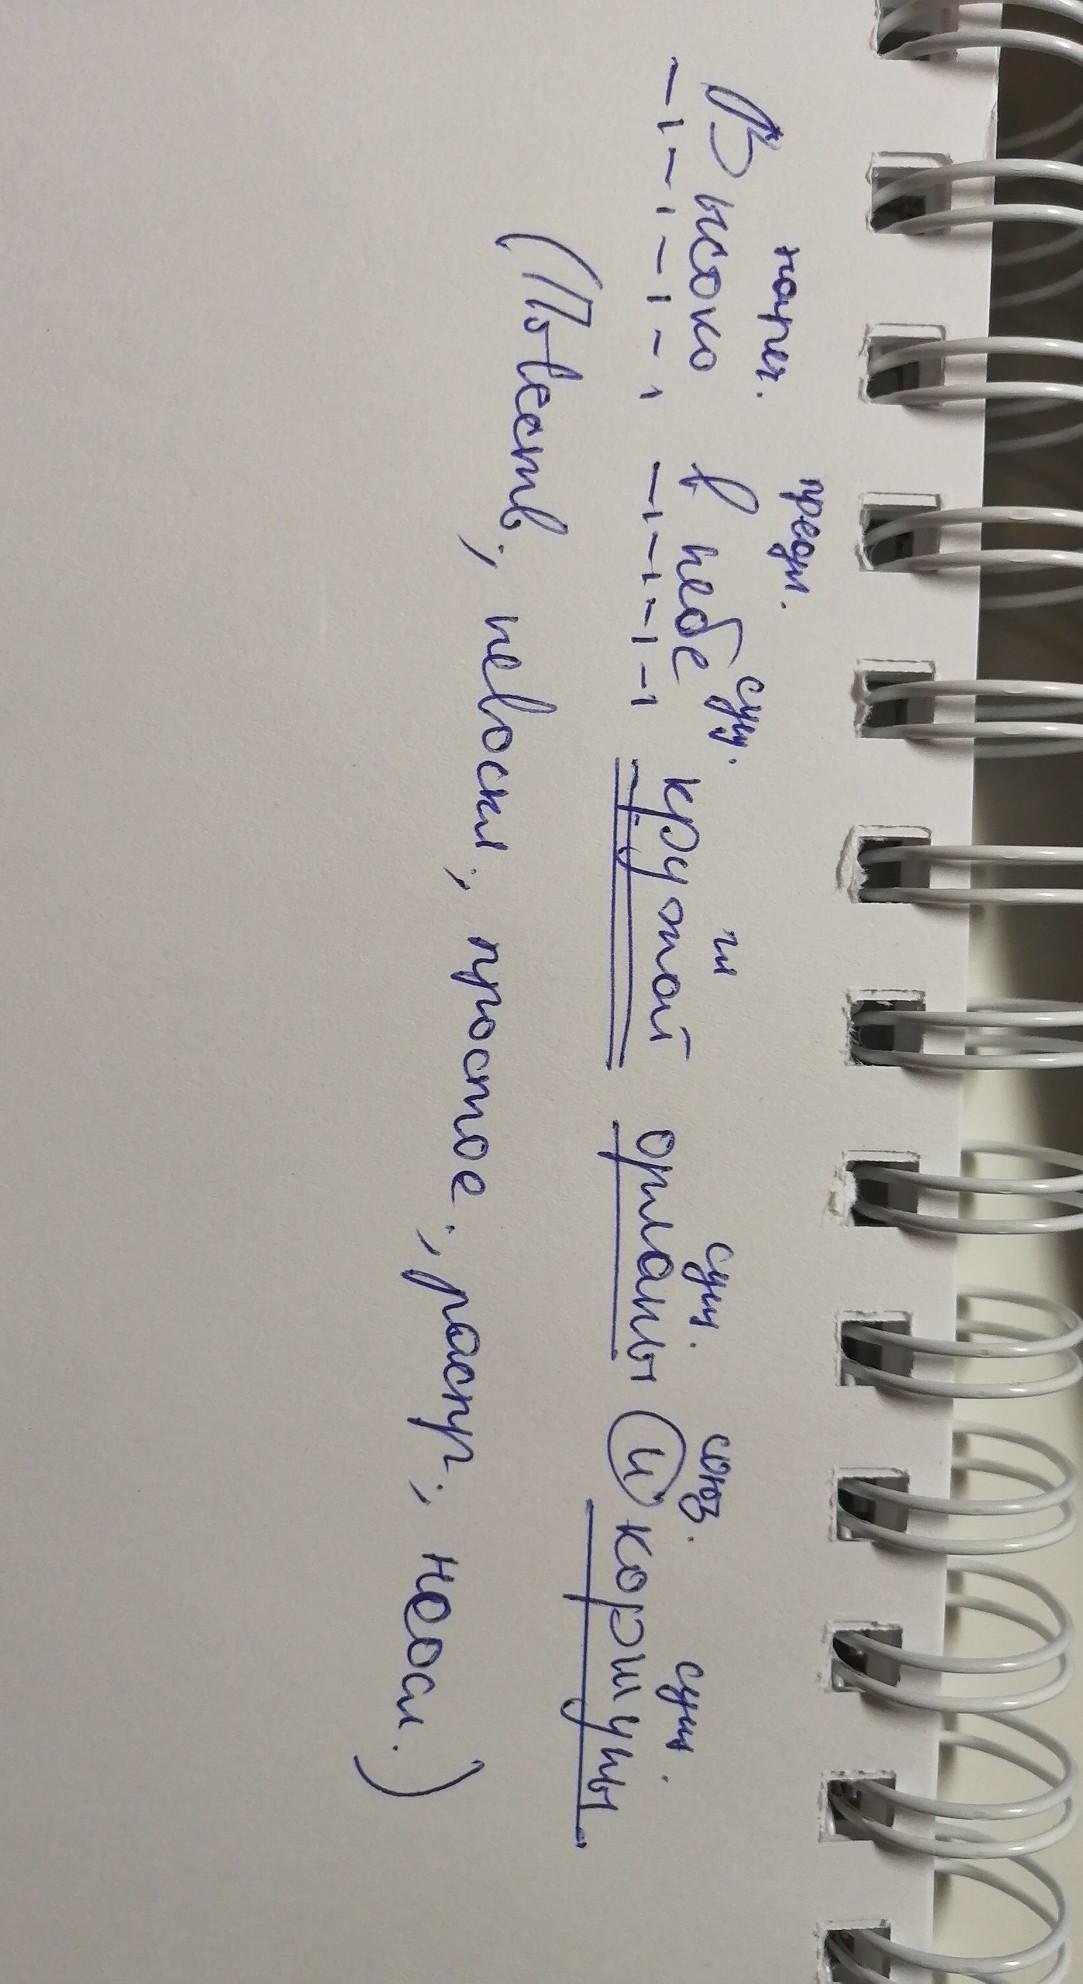 нареч. предл. сущ. гл сущ. союз. сущ.
Высоко в небе кружат орланы и коршуны.
(Повеств., невоскл., простое., распр., неосл.)